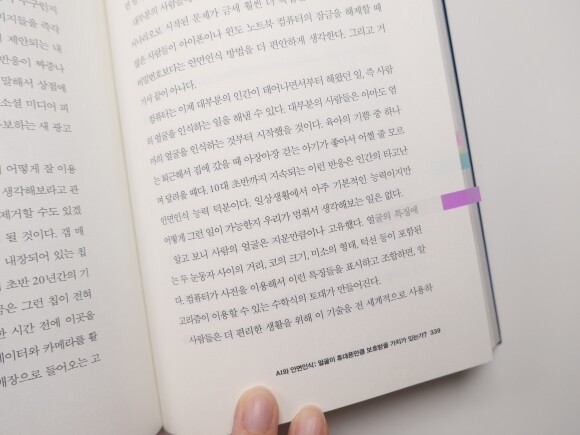 지들을 즉각
제안되는 내
반응이 빠증나
말해서 상점에
소셜 미디어 피
보하는 새 광고
어떻게 잘 이용
생각해보라고 관
제거할 수도 있겠
될 것이다. 갭 매
내장되어 있는 칩
초반 20년간의 기
은 그런 칩이 전혀
한 시간 전에 이곳을
데이터와 카메라를 활
매장으로 들어오는 고
대부분의 사람들은
시나리오로 시작된 문제가 금세 훨씬 더
많은 사람들이 아이폰이나 윈도 노트북 컴퓨터의 잠금을 해제할 때
비밀번호보다는 안면인식 방법을 더 편안하게 생각한다. 그리고 거
기서 끝이 아니다.
컴퓨터는 이제 대부분의 인간이 태어나면서부터 해왔던 일, 즉 사람
의 얼굴을 인식하는 일을 해낼 수 있다. 대부분의 사람들은 아마도 엄
마의 얼굴을 인식하는 것부터 시작했을 것이다. 육아의 기쁨 중 하나
는 퇴근해서 집에 갔을 때 아장아장 걷는 아기가 좋아서 어쩔 줄 모르
며 달려올 때다. 10대 초반까지 지속되는 이런 반응은 인간의 타고난
안면인식 능력 덕분이다. 일상생활에서 아주 기본적인 능력이지만
어떻게 그런 일이 가능한지 우리가 멈춰서 생각해보는 일은 없다.
알고 보니 사람의 얼굴은 지문만큼이나 고유했다. 얼굴의 특징에
는 두 눈동자 사이의 거리, 코의 크기, 미소의 형태, 턱선 등이 포함된
다. 컴퓨터가 사진을 이용해서 이런 특징들을 표시하고 조합하면, 알
고리즘이 이용할 수 있는 수학식의 토대가 만들어진다.
사람들은 더 편리한 생활을 위해 이 기술을 전 세계적으로 사용하
AI와 안면인식: 얼굴이 휴대폰만큼 보호받을 가치가 있는가? 339